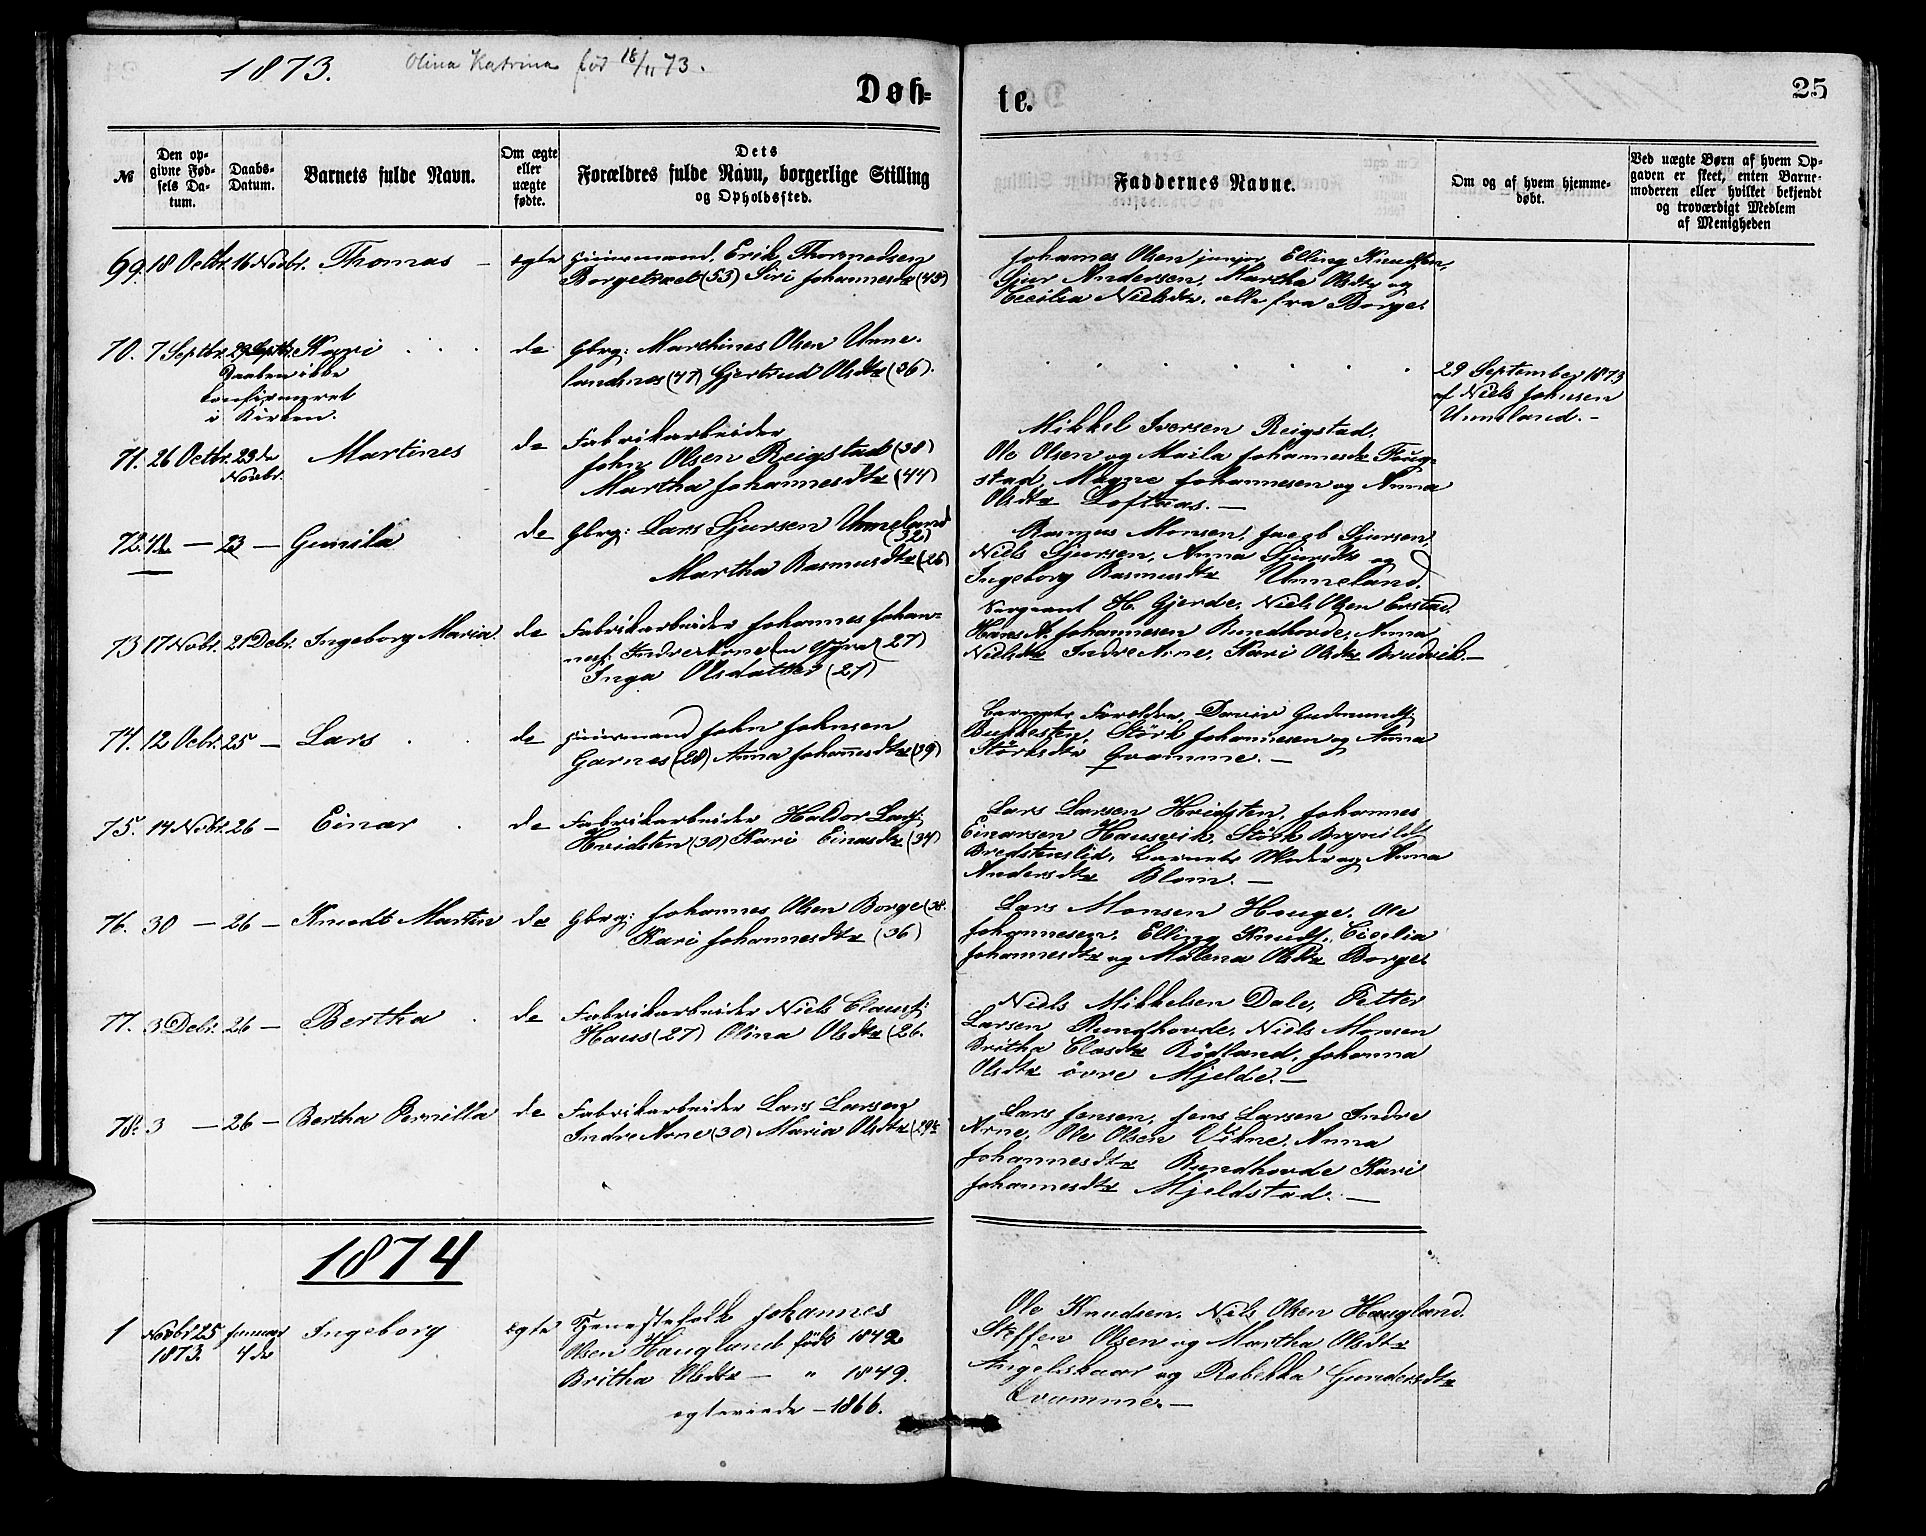 1873. Olina Katrina fød 18/11 73.
Døb- te. 25
№
Den op-
givne Fød-
sels Da-
tum.
Daabs-
Datum.
Barnets fulde Navn.
Om ægte
eller
uægte
fødte.
Dets
Forældres fulde Navn, borgerlige Stilling
og Opholdssted.
Faddernes Navne.
Om og af hvem hjemme-
døbt.
Ved uægte Børn af hvem Op-
gaven er skeet, enten Barne-
moderen eller hvilket bekjendt
og troværdigt Medlem
af Menigheden
69. 18 Octbr. 16 Novbr. Thomas – ægte Huusmand Erik Thormodsen
Borgetræet (53) Siri Johannesdtr (43)
Johannes Olsen junior, Elling Knudsen,
Sjur Andersen, Martha Olsdtr og
Cecilia Nielsdtr, alle fra Borge.
70. 7 Septbr. 29 Septbr. Kari de Gbrg: Marthines Olsen Unne-
Daaben ikke
confirmeret
i Kirken.
landnes (47) Gjertrud Olsdtr (36).
29 September 1873
af Niels Johnsen
Unneland. –
71. 26 Octbr. 23de
Novbr.
Martines de Fabrikarbeider
John Olsen Reigstad (38)
Martha Johannesdtr (44)
Mikkel Iversen Reigstad,
Ole Olsen og Maila Johannesdtr Foug-
stad, Magne Johannesen og Anna
Olsdtr Loftaas. –
72. – 23 – Gunila de Gbrg: Lars Sjursen Unneland
(32)
Martha Rasmusdtr (26)
Rasmus Monsen, Jacob Sjursen
Niels Sjursen, Anna Sjursdtr og
Ingeborg Rasmusdtr Unneland.
73 17 Novbr. 21 Debr. Ingeborg Maria de Fabrikarbeider Johannes Johan-
nes. Indre Arne (27)
Inga Olsdatter (27)
Sergeant H. Gjerde, Niels Olsen
Hans A. Johannesen Rundhovde, Anna
Nielsdtr Indre Arne, Kari Olsdtr Brudvik. –
74. 12 Octbr. 25 – Lars de Huusmand John Johnsen
Garnes (28) Anna Johannesdtr (39)
Barnets Forældre, David Gudmunds.
Bukkesten, Störk Johannesen og Anna
Störksdtr Qvamme. –
75. 14 Novbr. 26 – Einar de Fabrikarbeider Haldor Lars:
Hvidsten (30) Kari Einarsdtr (34)
Lars Larsen Hvidsten, Johannes
Einarsen Hausvik, Störk Brynilds.
Bredstenslid, Barnets Moder og Anna
Andersdtr Blom. –
76. 30 – 26 – Knudt Martin de Gbrg: Johannes Olsen Borge (38.
Kari Johannesdtr (36)
Lars Monsen Houge, Ole
Johannesen, Elling Knuds., Cicelia
Johannesdtr og Malena Olsdtr Borge.
77. 3 Debr. 26 – Bertha de Fabrikarbeider Niels Clauss:
Haus (27) Olina Olsdtr (26.
Niels Mikkelsen Dale, Petter
Larsen Rundhovde, Niels Monsen
Britha Clasdtr Rödland, Johanna
Olsdtr övre Mjelde. –
78. 3 – 26 – Bertha Pernilla de Fabrikarbeider Lars Larsen
Indre Arne (30) Maria Olsdtr (29
Lars Jensen, Jens Larsen Indre
Arne, Ole Olsen Vikne, Anna
Johannesdtr Rundhovde Kari
Johannesdtr Mjeldstad. –
1874
1 Novbr 25
1873.
Januar
4de
Ingeborg ægte Tjenestefolk Johannes
Olsen Haugland född 1842
Britha Olsdtr – " 1849.
egteviede – 1866.
Ole Knudsen, Niels Olsen Haugland.
Steffen Olsen og Martha Olsdtr
Angelskaar og Rebekka Gundersdtr
Qvamme. –